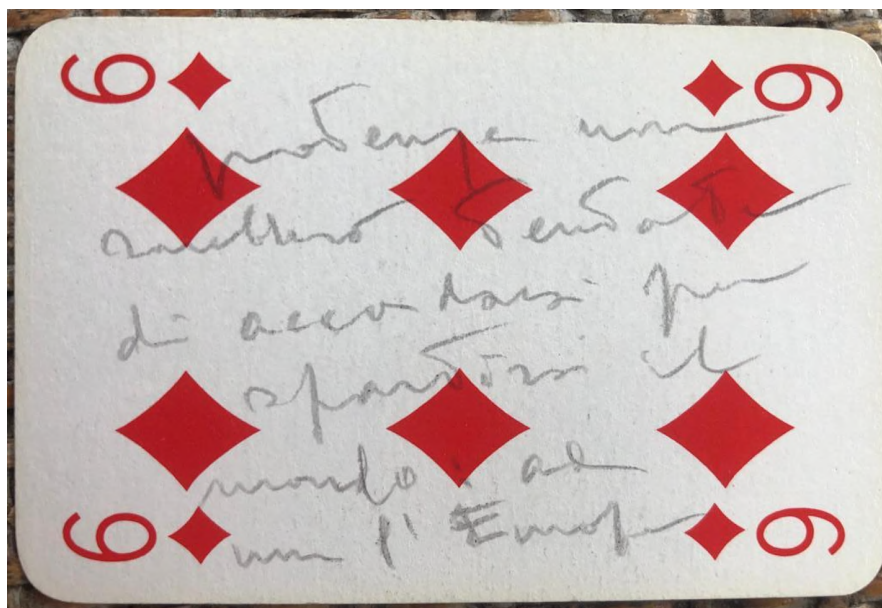 6 6
potenze non
sarebbero tentate
di accordarsi per
spartirsi il
mondo: ad
una l'Europa
6 6